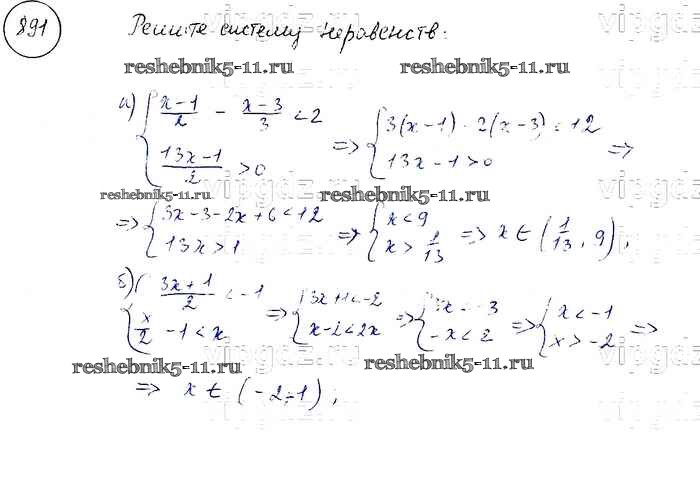 891
Решите систему неравенств:
reshebnik5-11.ru reshebnik5-11.ru
а) { (x-1)/2 - (x-3)/3 < 2 ⇒ { 3(x-1) - 2(x-3) < 12
{ (13x-1)/2 > 0 { 13x-1 > 0 ⇒
reshebnik5-11.ru reshebnik5-11.ru
⇒ { 3x-3-2x+6 < 12 ⇒ { x < 9
{ 13x > 1 { x > 1/13 ⇒ x ∈ (1/13, 9),
б) { (3x+1)/2 < -1 ⇒ { 3x+1 < -2 ⇒ { 3x = -3 ⇒ { x < -1
{ x/2 - 1 < x { x-2 < 2x { -x < 2 { x > -2 ⇒
reshebnik5-11.ru reshebnik5-11.ru
⇒ x ∈ (-2;-1);
vipgdz.ru